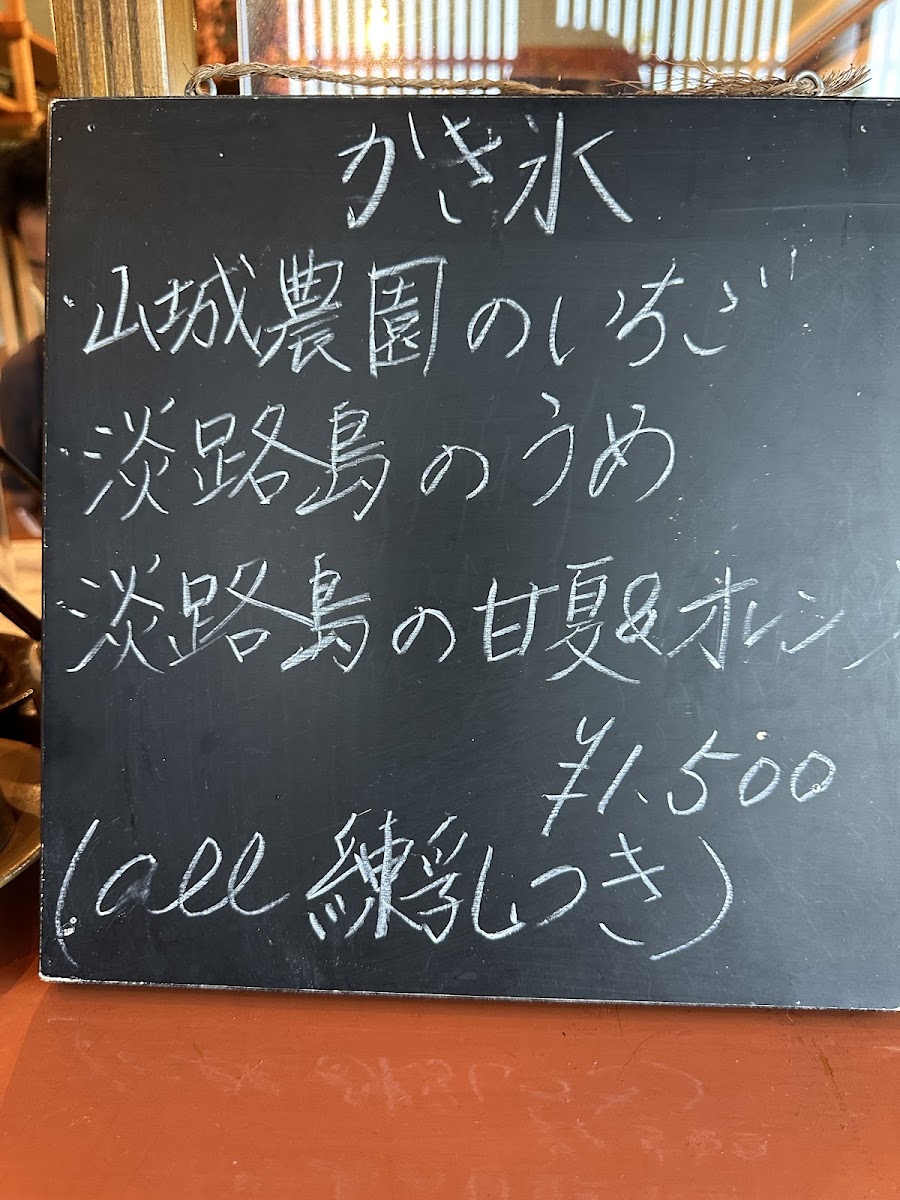 かき氷
・山城農園のいちご
・淡路島のうめ
・淡路島の甘夏&オレンジ
¥1,500
(all 練乳つき)